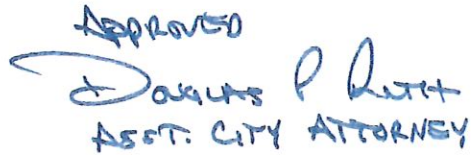 APPROVED
Douglas P Ruth
ASST. CITY ATTORNEY